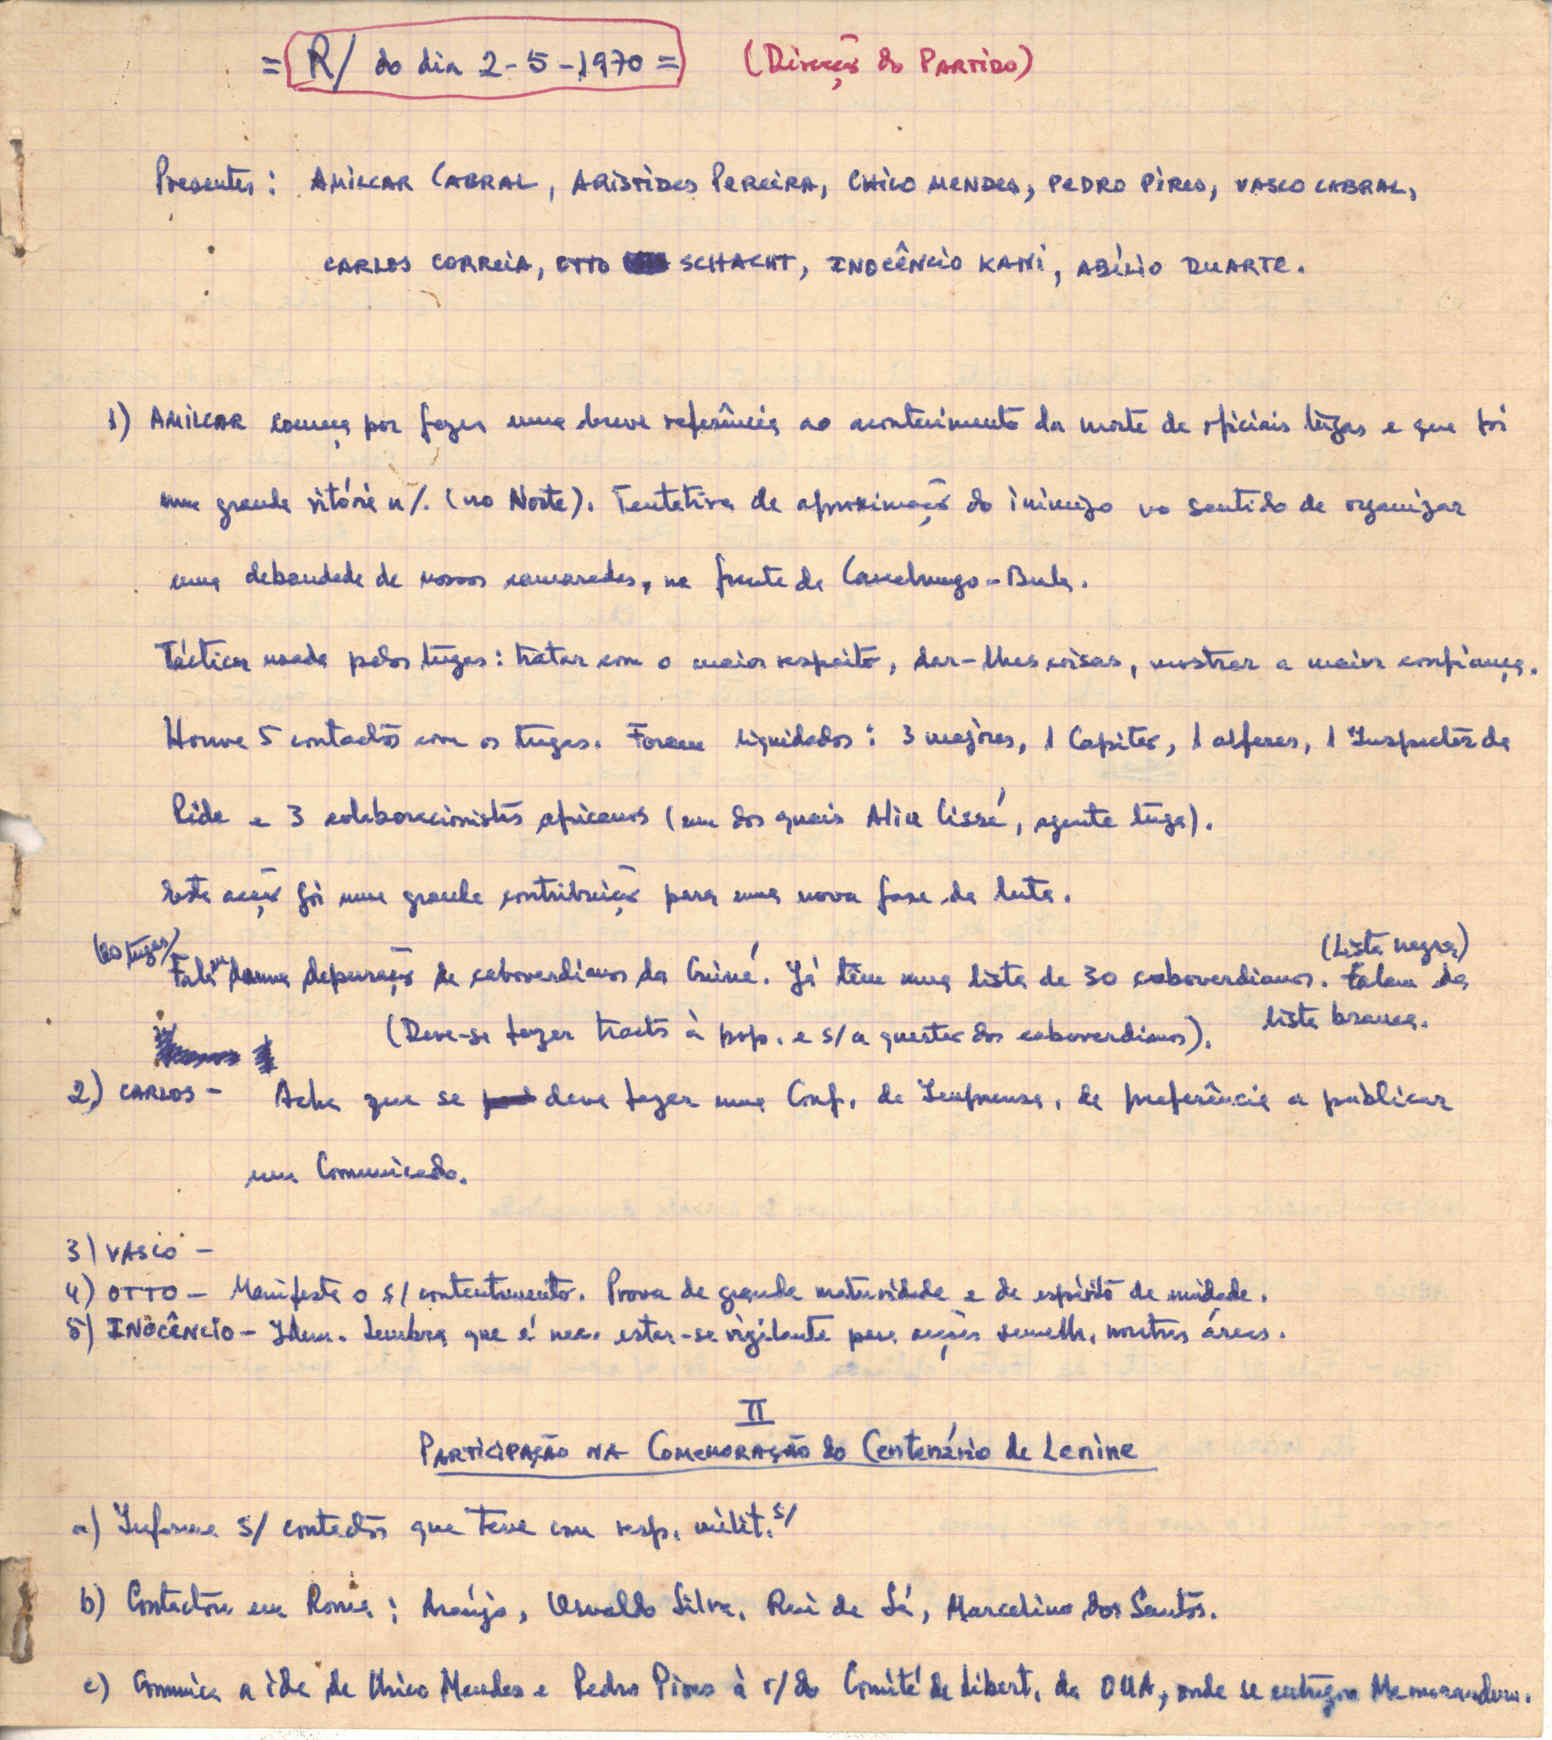 = R/ do dia 2-5-1970 = (Direcção do PARTIDO)
Presentes: AMILCAR CABRAL, ARISTIDES PEREIRA, CHICO MENDES, PEDRO PIRES, VASCO CABRAL,
CARLOS CORREIA, OTTO SCHACHT, INOCÊNCIO KANI, ABÍLIO DUARTE.
1) AMILCAR começa por fazer uma breve referência ao acontecimento da morte de oficiais tugas e que foi
uma grande vitória n/. (no Norte). Tentativa de aproximação do inimigo no sentido de organizar
uma debandada de nossos camaradas, na frente de Canchungo-Bula.
Táctica usada pelos tugas: tratar com o maior respeito, dar-lhes coisas, mostrar a maior confiança.
Houve 5 contactos com os tugas. Foram liquidados: 3 majores, 1 Capitão, 1 alferes, 1 Inspector da
Pide e 3 colaboracionistas africanos (um dos quais Aliu Cissé, agente tuga).
Esta acção foi uma grande contribuição para uma nova fase da luta.
(os tugas) (Lista negra)
Falam duma depuração de caboverdianos da Guiné. Já têm uma lista de 30 caboverdianos. Falam da
lista branca.
(Deve-se fazer tracts à pop. e s/ a questão dos caboverdianos).
2) CARLOS - Acha que se deve fazer uma Conf. de Imprensa, de preferência a publicar
um Comunicado.
3) VASCO -
4) OTTO - Manifesta o s/ contentamento. Prova de grande maturidade e de espírito de unidade.
5) INOCÊNCIO - Idem. Lembra que é nec. estar-se vigilante para acções semelh. noutras áreas.
II
PARTICIPAÇÃO NA COMEMORAÇÃO do Centenário de Lenine
a) Informa s/ contactos que teve com resp. milit. s/
b) Contactou em Roma: Araújo, Osvaldo Silva, Rui de Sá, Marcelino dos Santos.
c) Comunica a ida de Chico Mendes e Pedro Pires à r/ do Comité de Libert. da OUA, onde se entregou Memorandum.